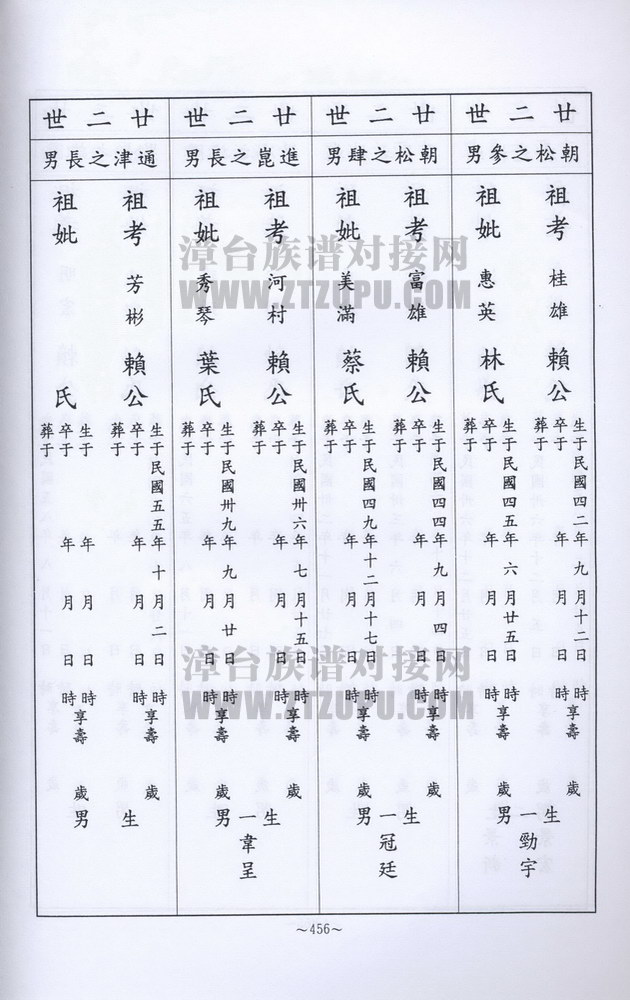 廿二世
朝松之參男
祖考 桂雄 賴公
生于民國四二年九月十二日 時享壽 歲
卒于 年 月 日 時
葬于
祖妣 惠英 林氏
生于民國四五年六月廿五日 時享壽 歲
卒于 年 月 日 時
葬于
生一男
勁宇
廿二世
朝松之肆男
祖考 富雄 賴公
生于民國四四年九月四日 時享壽 歲
卒于 年 月 日 時
葬于
祖妣 美滿 蔡氏
生于民國四九年十二月十七日 時享壽 歲
卒于 年 月 日 時
葬于
生一男
冠廷
廿二世
進崑之長男
祖考 河村 賴公
生于民國卅六年七月十五日 時享壽 歲
卒于 年 月 日 時
葬于
祖妣 秀琴 葉氏
生于民國卅九年九月廿日 時享壽 歲
卒于 年 月 日 時
葬于
生一男
韋呈
廿二世
通津之長男
祖考 芳彬 賴公
生于民國五五年十月二日 時享壽 歲
卒于 年 月 日 時
葬于
祖妣 氏
生于 年 月 日 時享壽 歲
卒于 年 月 日 時
葬于
生 男
~456~
漳台族谱对接网
WWW.ZTZUPU.COM
漳台族谱对接网
WWW.ZTZUPU.COM